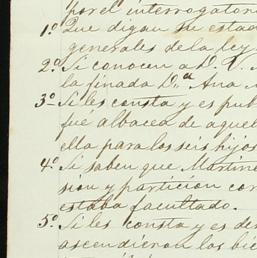 por el interrogatori
1ª Que digan su estad
generales de la ley
2ª Si conocen a D. V. 
la finada Dª Ana M
3ª Si les consta y es pub
fué albacea de aquel
ella para los seis hijos
4ª Si saben que Martine
sion y particion con
estaba facultado.
5ª Si les consta y es de
ascendieron los bie